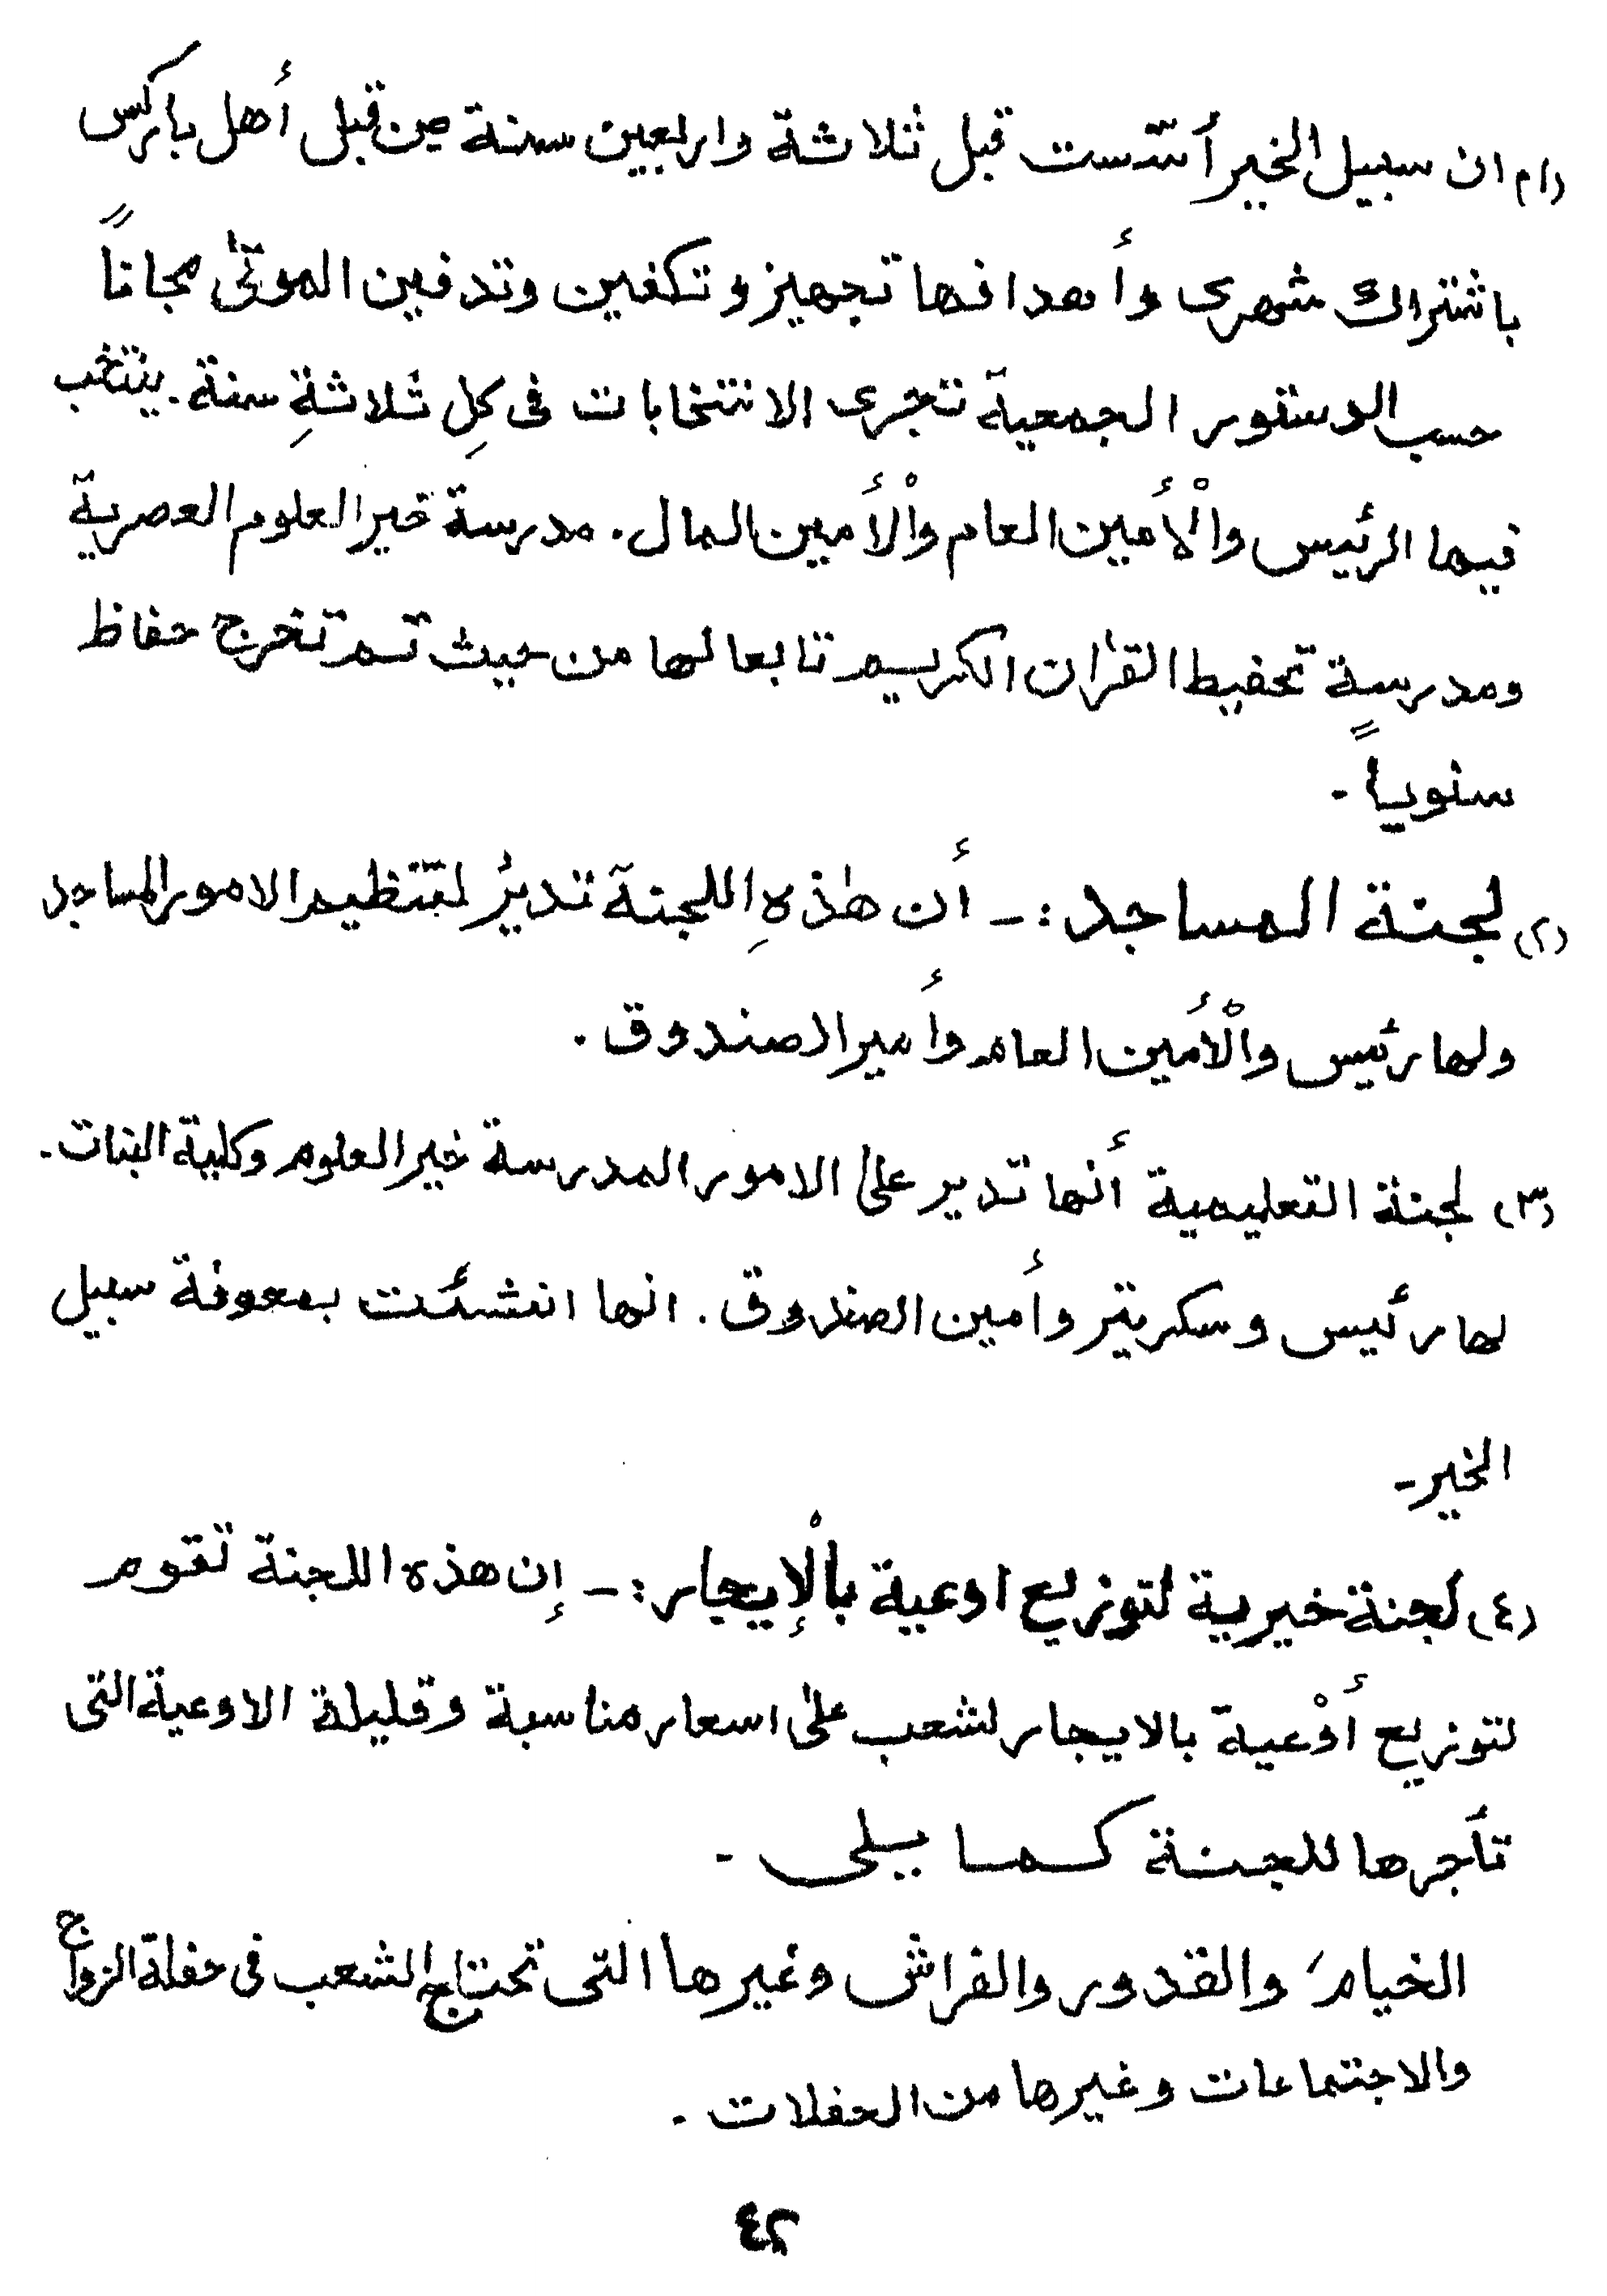 (١) ان سبيل الخير أسّست قبل ثلاثة واربعين سنة من قبل أهل باركس
باشتراك شهرى وأهدافها تجهيز وتكفين وتدفين الموتىٰ مجاناً
حسب الدستور الجمعية تجرى الانتخابات فى كلِ ثلاثةِ سنة. ينتخب
فيها الرئيس والْأمين العام والْأمين المال. مدرسة خير العلوم العصرية
ومدرسة تحفيظ القرٰان الكريم تابعا لها من حيث تم تخرج حفاظ
سنوياً -
(٢) لجنة المساجد :- أن هٰذهِ اللجنة تديرُ لتنظيم الامور المساجد
ولها رئيس والْأمين العام وأمير الصندوق .
(٣) لجنة التعليمية أنها تدير علىٰ الامور المدرسة خير العلوم وكلية البنات-
لها رئيس وسكريتر وأمين الصندوق. انها انشئت بمعونة سبيل
الخير-
(٤) لجنة خيرية لتوزيع اوعية بالْإيجار :- إن هذه اللجنة تقوم
لتوزيع أوْعية بالايجار لشعب علىٰ اسعار مناسبة وقليلة الاوعية التى
تأجرها للجنة كما يلى -
الخيامَ والقدور والفراش وغيرها التى تحتاج الشعب فى حفلة الزواج
والاجتماعات وغيرها من الحفلات .
٤٢